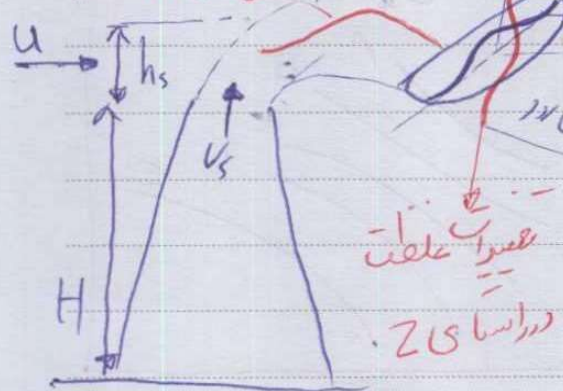 u
hs
Vs
H
تغییرات غلظت
در راستای Z.